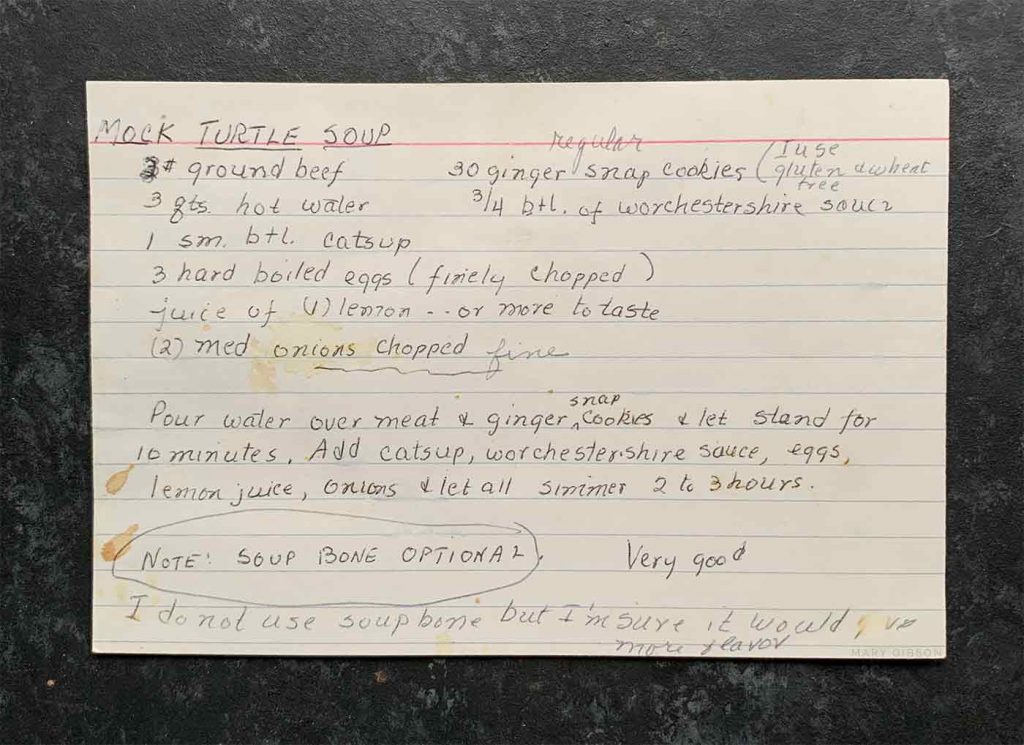 MOCK TURTLE SOUP
3# ground beef
3 qts. hot water
1 sm. btl. catsup
3 hard boiled eggs (finely chopped)
juice of (1) lemon -- or more to taste
(2) med onions chopped fine
regular
30 ginger snap cookies (I use
gluten & wheat
free
3/4 btl. of worchestershire sauce
Pour water over meat & ginger snap cookies & let stand for
10 minutes. Add catsup, worchestershire sauce, eggs,
lemon juice, onions & let all simmer 2 to 3 hours.
NOTE: SOUP BONE OPTIONAL.
Very good
I do not use soup bone but I'm sure it would
more flavor
MARY GIBSON